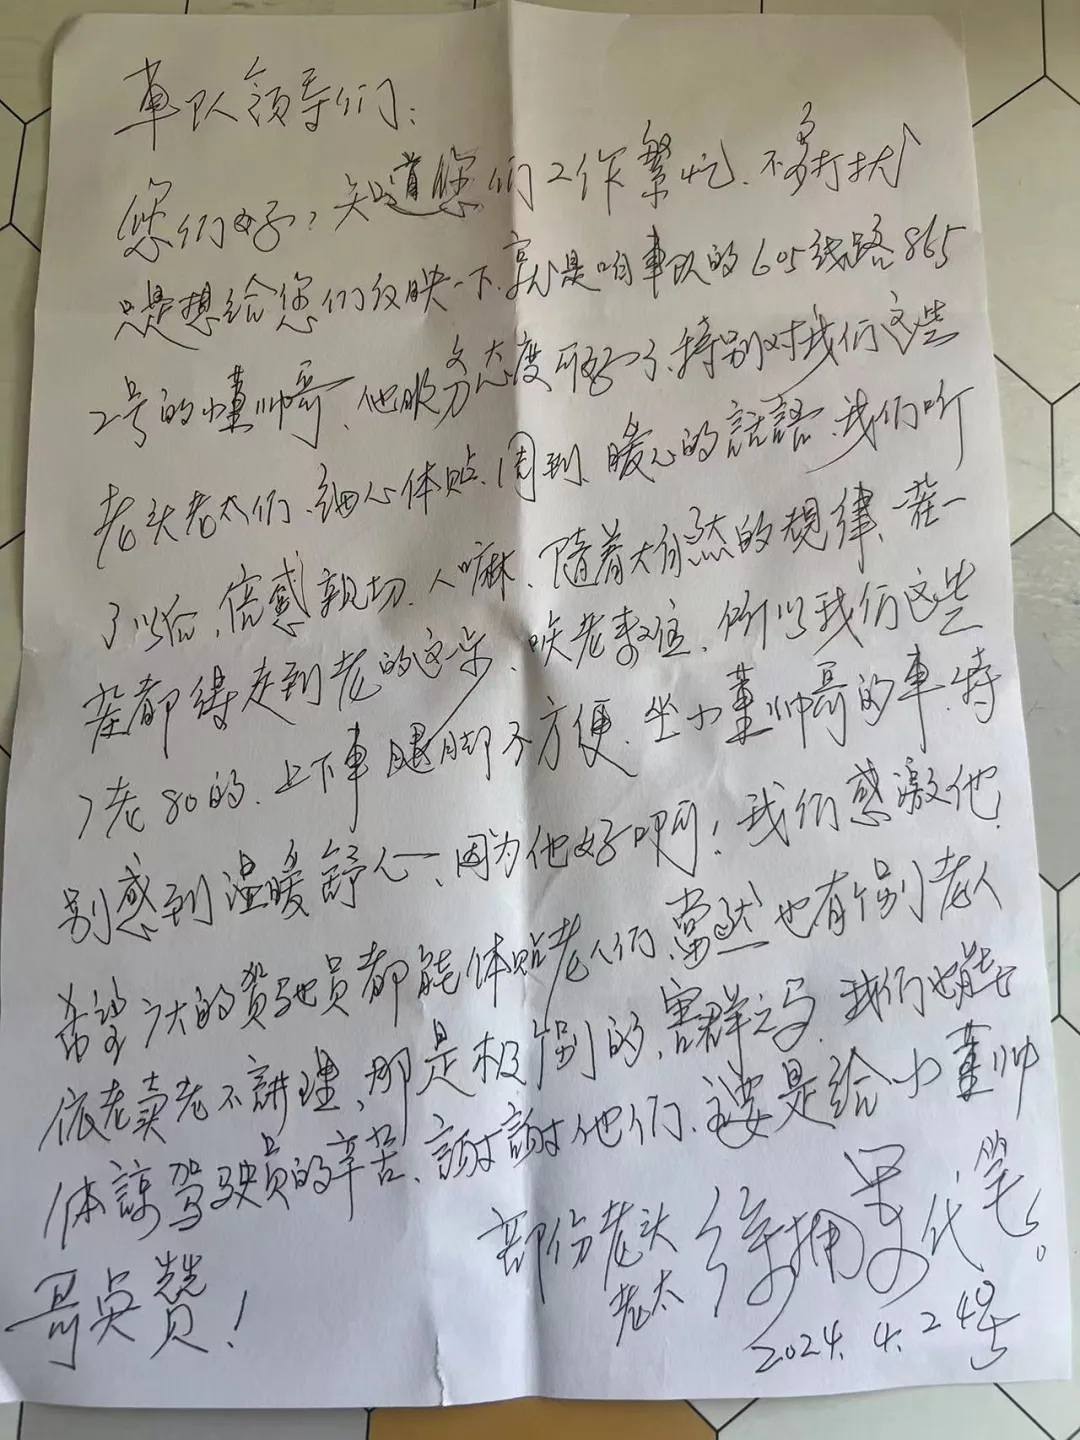 車队领导们：
您们好，知道您们工作繁忙、不多打扰
只是想给您们反映一下、就是咱車队的605线路865
2号的小董帅哥、他服务态度可好了、特别对我们这些
老头老太们、细心体贴、周到、暖心的話語、我们听
了以后，倍感親切、人嘛、隨着大自然的規律、一茬一
茬都得走到老的这一步、唉老来难、所以我们这些
7老80的、上下車腿脚不方便、坐小董帅哥的車、特
别感到温暖舒心、因为他好啊！我们感激他！
希望广大的駕驶員都能体贴老人们、當然也有个别老人
依老卖老不講理、那是极个别的、害群之马、我们也能
体諒駕驶员的辛苦、謝謝他们、主要是给小董帅
哥点赞！
部份老头
老太
代笔。
2024.4.24号